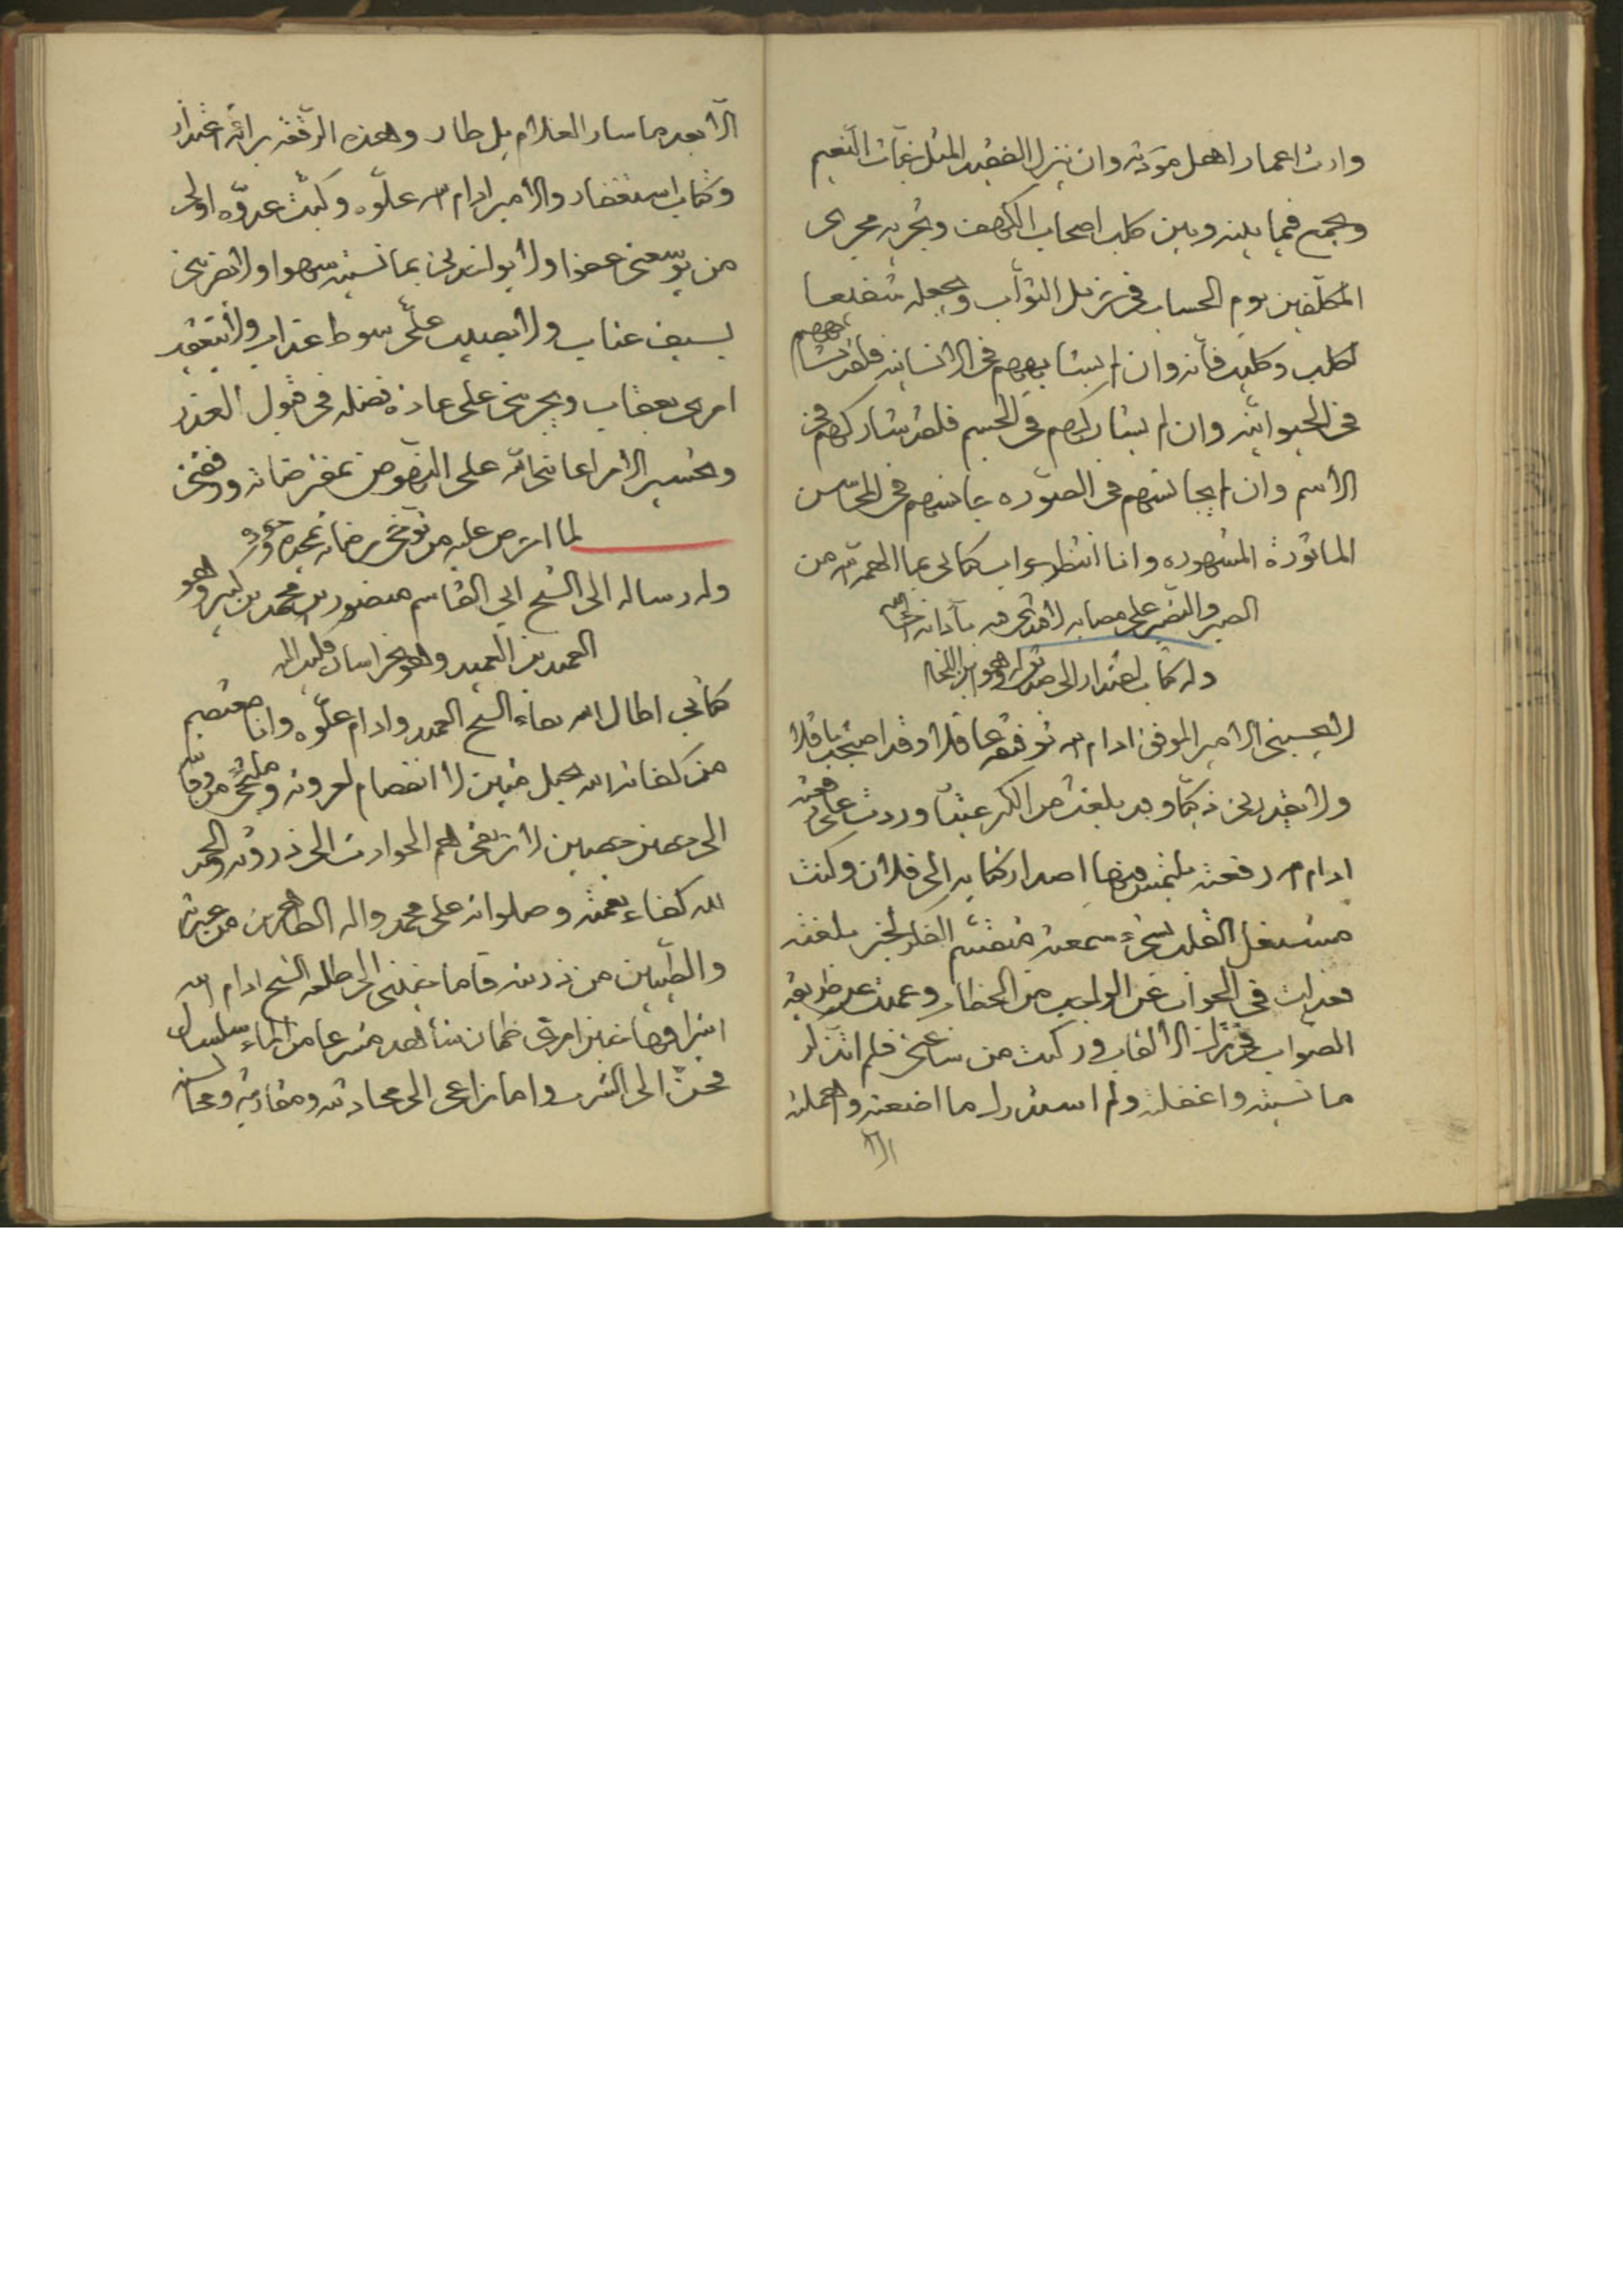 وارث اعمار اهل مودته وان ينزل الفقيد المثل جنات النعيم
ويجمع فيما بينه وبين كلب اصحاب الكهف ويجريه مجرى
المكلفين يوم الحساب في نيل الثواب ويجعله شفيعا
لكلب وكليب فانه وان لم يشابههم في الانسانيه فلقد شابههم
في الحيوانيه وان لم يشاركهم في الجسم فلقد شاركهم في
الاسم وان لم يجانسهم في الصوره جانسهم في المحاسن
الماثورة المشهوره وانا انتظر جواب كتابي بما الهمه الله من
الصبر والتصبر على مصابه
وله كتاب اعتذار الى صديق له وهو
لا يحسبني الامير الموفق ادام الله توفيقه عاقلا وقد اصبحت باقلا
ولا يقدرني ذكيا وقد بلغت من الكر عتيا وردت على رقعته
ادام الله رفعته يلتمس فيها اصدار كتابه الى فلان وكنت
مشتغل القلب لشيء سمعته منقسم الفكر لخبر بلغته
فعدلت في الجواب عن الواجب من الخطاب وعميت عن طريقة
الصواب في ترتيب الالقاب وركبت من ساعتي فلم اتذكر
ما نسيته واغفلته ولم استدرك ما اضعته واهملته
الا
الا بعد ما سار الغلام بل طار وهذه الرقعه براءة اعتذار
وكتاب استغفار والامير ادام الله علوه وكبت عدوه اولى
من يوسعني عفوا ولا يواخذني بما نسيته سهوا ولا يضربني
بسيف عتاب ولا يصبب علي سوط عذاب ولا يتعقب
امري بعقاب ويجريني على عادة فضله في قبول العذر
وتحسير الامر اعانني الله على النهوض بمفترضاته ووفقني
لما افترض عليه من توخي مرضاته بمجده وجوده
وله رساله الى الشيخ ابي القاسم منصور بن محمد بن كثير وهو
العميد بن العميد وهو بخراسان
كتابي اطال الله بقاء الشيخ العميد وادام علوه وانا معتصم
من كفاية الله بحبل متين لا انفصام لعروته وملتجئ من وقايته
الى حصن حصين لا ترتقي همم الحوادث الى ذروته والحمد
لله كفاء نعمته وصلواته على محمد واله الطاهرين من عترته
والطيبين من ذريته فاما حنيني الى طلعة الشيخ ادام الله
اشراقها فحنين امرئ ظمان شاهد مشرعا من الماء سلسال
فحن الى الشرب واما نزاعي الى محادثته ومفاوضته ومجالسته